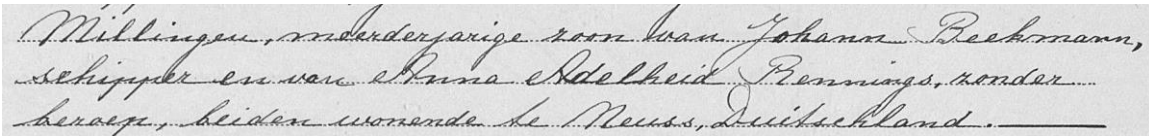 Millingen, meerderjarige zoon van Johann Beekmann,
schipper en van Anna Adelheid Rennings, zonder
beroep, beiden wonende te Neuss, Duitschland.